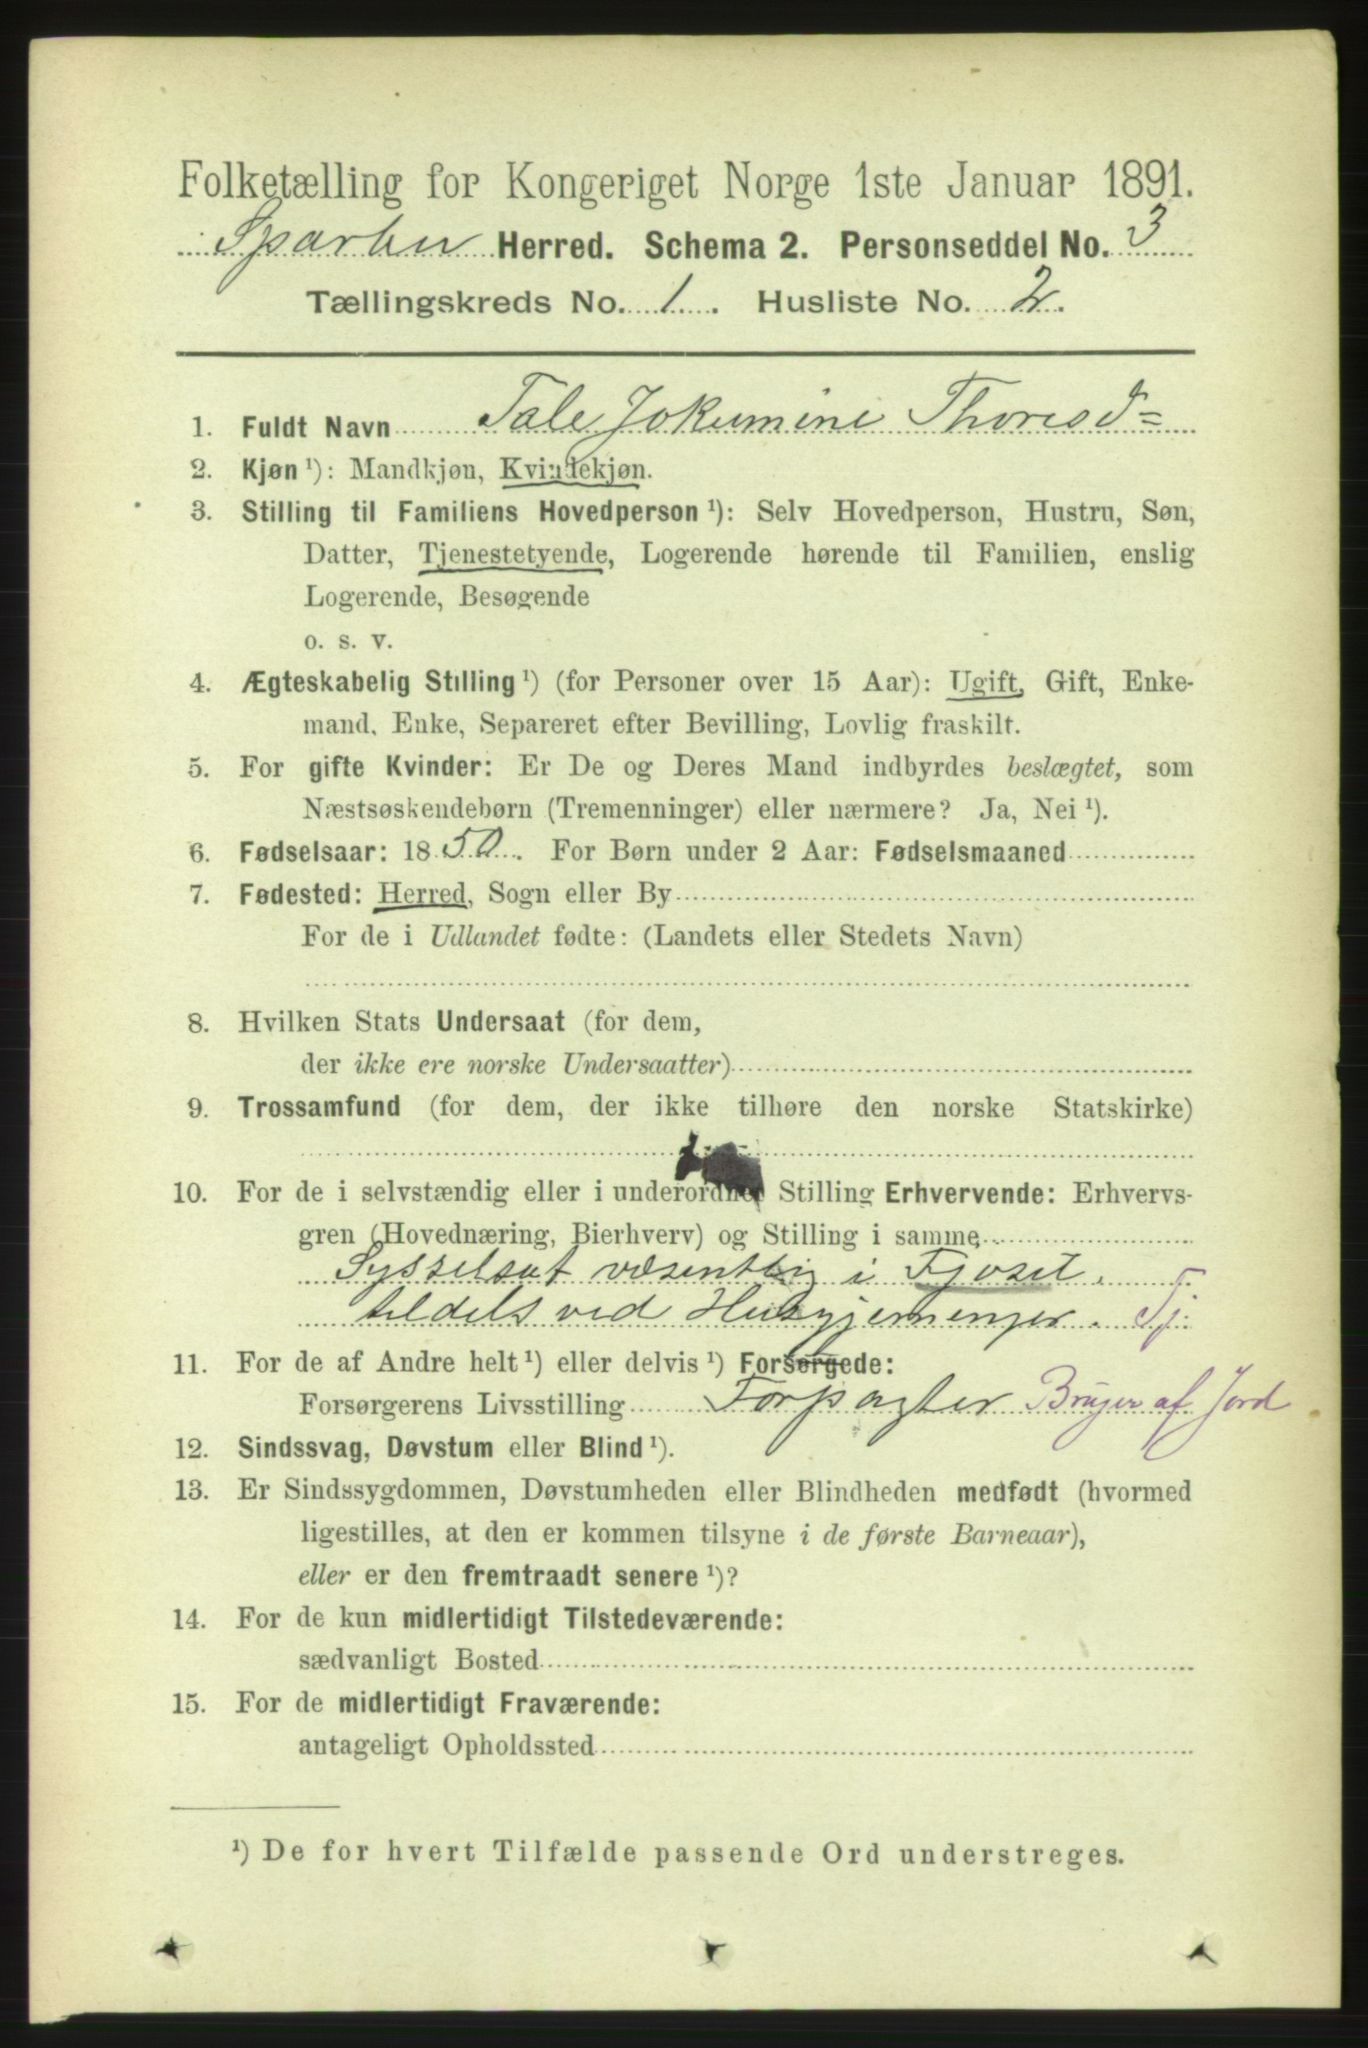 Folketælling for Kongeriget Norge 1ste Januar 1891.
Sparbu Herred. Schema 2. Personseddel No. 3
Tællingskreds No. 1. Husliste No. 2.
1. Fuldt Navn Tale Jokumine Thoresd=
2. Kjøn ¹): Mandkjøn, Kvindekjøn.
3. Stilling til Familiens Hovedperson ¹): Selv Hovedperson, Hustru, Søn,
Datter, Tjenestetyende, Logerende hørende til Familien, enslig
Logerende, Besøgende
o. s. v.
4. Ægteskabelig Stilling ¹) (for Personer over 15 Aar): Ugift, Gift, Enke-
mand, Enke, Separeret efter Bevilling, Lovlig fraskilt.
5. For gifte Kvinder: Er De og Deres Mand indbyrdes beslægtet, som
Næstsøskendebørn (Tremenninger) eller nærmere? Ja, Nei ¹).
6. Fødselsaar: 1850. For Børn under 2 Aar: Fødselsmaaned
7. Fødested: Herred, Sogn eller By
For de i Udlandet fødte: (Landets eller Stedets Navn)
8. Hvilken Stats Undersaat (for dem,
der ikke ere norske Undersaatter)
9. Trossamfund (for dem, der ikke tilhøre den norske Statskirke)
10. For de i selvstændig eller i underordnet Stilling Erhvervende: Erhvervs-
gren (Hovednæring, Bierhverv) og Stilling i samme
Sysselsat væsentlig i Fjøset,
tildels ved Husgjerninger. Tj.
11. For de af Andre helt ¹) eller delvis ¹) Forsørgede:
Forsørgerens Livsstilling Forpagter Bruger af Jord
12. Sindssvag, Døvstum eller Blind ¹).
13. Er Sindssygdommen, Døvstumheden eller Blindheden medfødt (hvormed
ligestilles, at den er kommen tilsyne i de første Barneaar),
eller er den fremtraadt senere ¹)?
14. For de kun midlertidigt Tilstedeværende:
sædvanligt Bosted
15. For de midlertidigt Fraværende:
antageligt Opholdssted
¹) De for hvert Tilfælde passende Ord understreges.